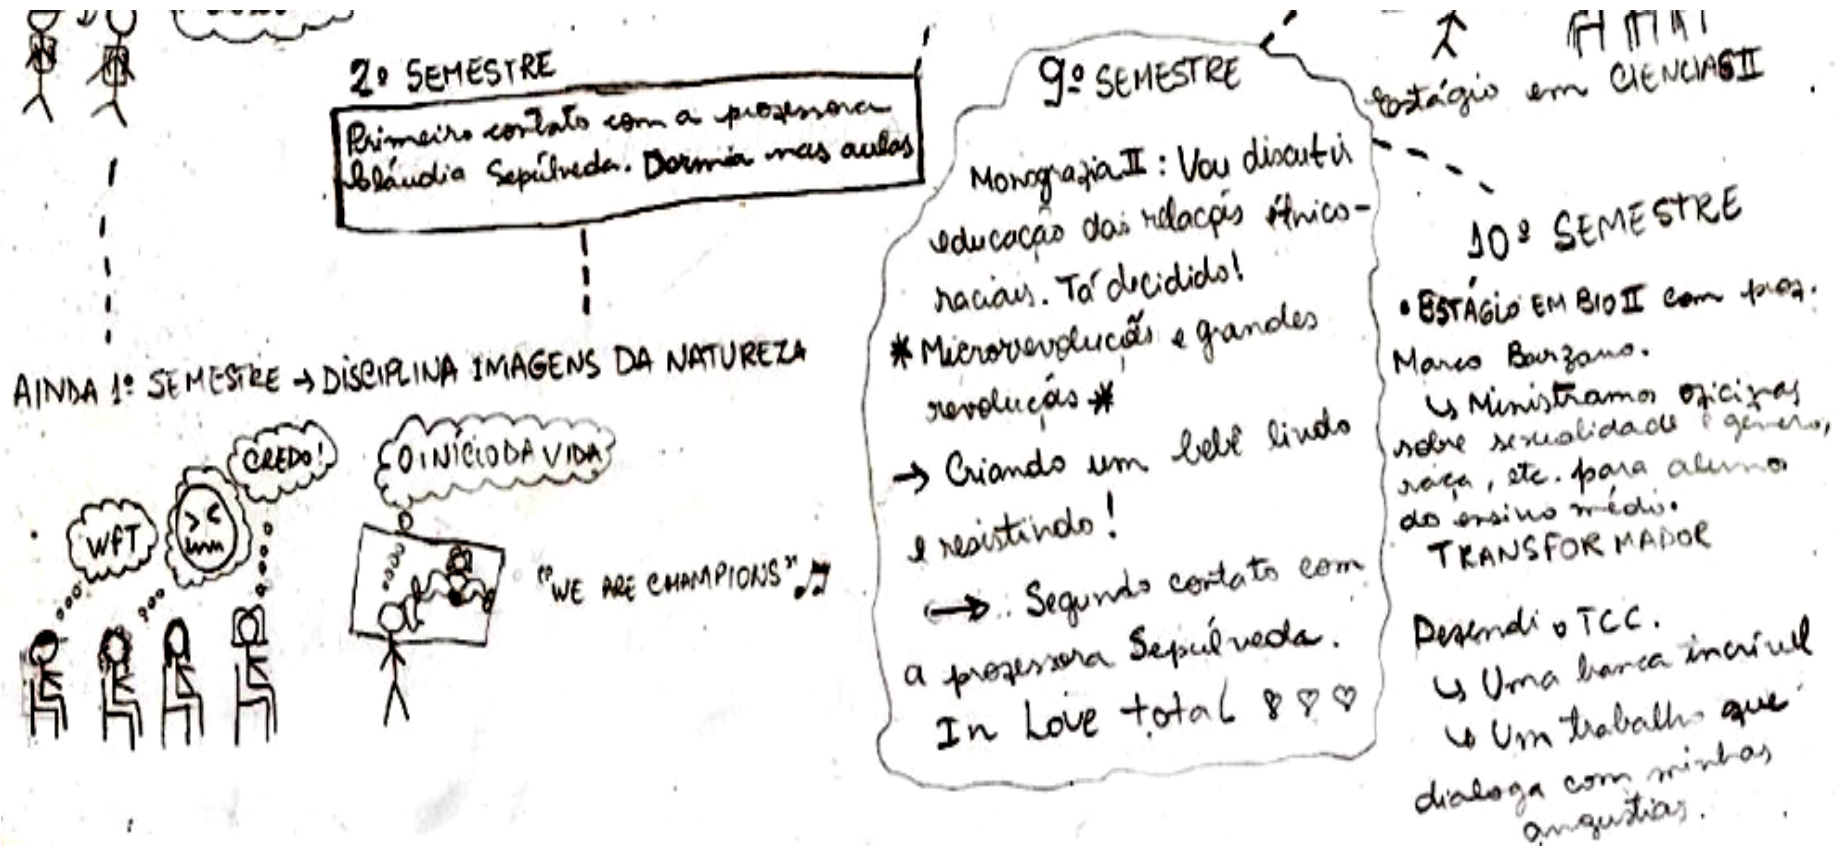 2º SEMESTRE
Primeiro contato com a professora
Cláudia Sepúlveda. Dormia nas aulas
AINDA 1º SEMESTRE → DISCIPLINA IMAGENS DA NATUREZA
WFT
CREDO!
O INÍCIO DA VIDA
"WE ARE CHAMPIONS"
9º SEMESTRE
Monografia II: Vou discutir
educação das relações étnico-
raciais. Tá decidido!
* Microrevoluções e grandes
revoluções *
→ Criando um bebê lindo
e resistindo!
→ Segundo contato com
a professora Sepúlveda.
In Love total
Estágio em CIENCIAS II
10º SEMESTRE
• ESTÁGIO EM BIO II com prof.
Marco Barzano.
↳ Ministramos oficinas
sobre sexualidade e gênero,
raça, etc. para alunos
do ensino médio.
TRANSFORMADOR
Defendi o TCC.
↳ Uma banca incrível
↳ Um trabalho que
dialoga com minhas
angustias.